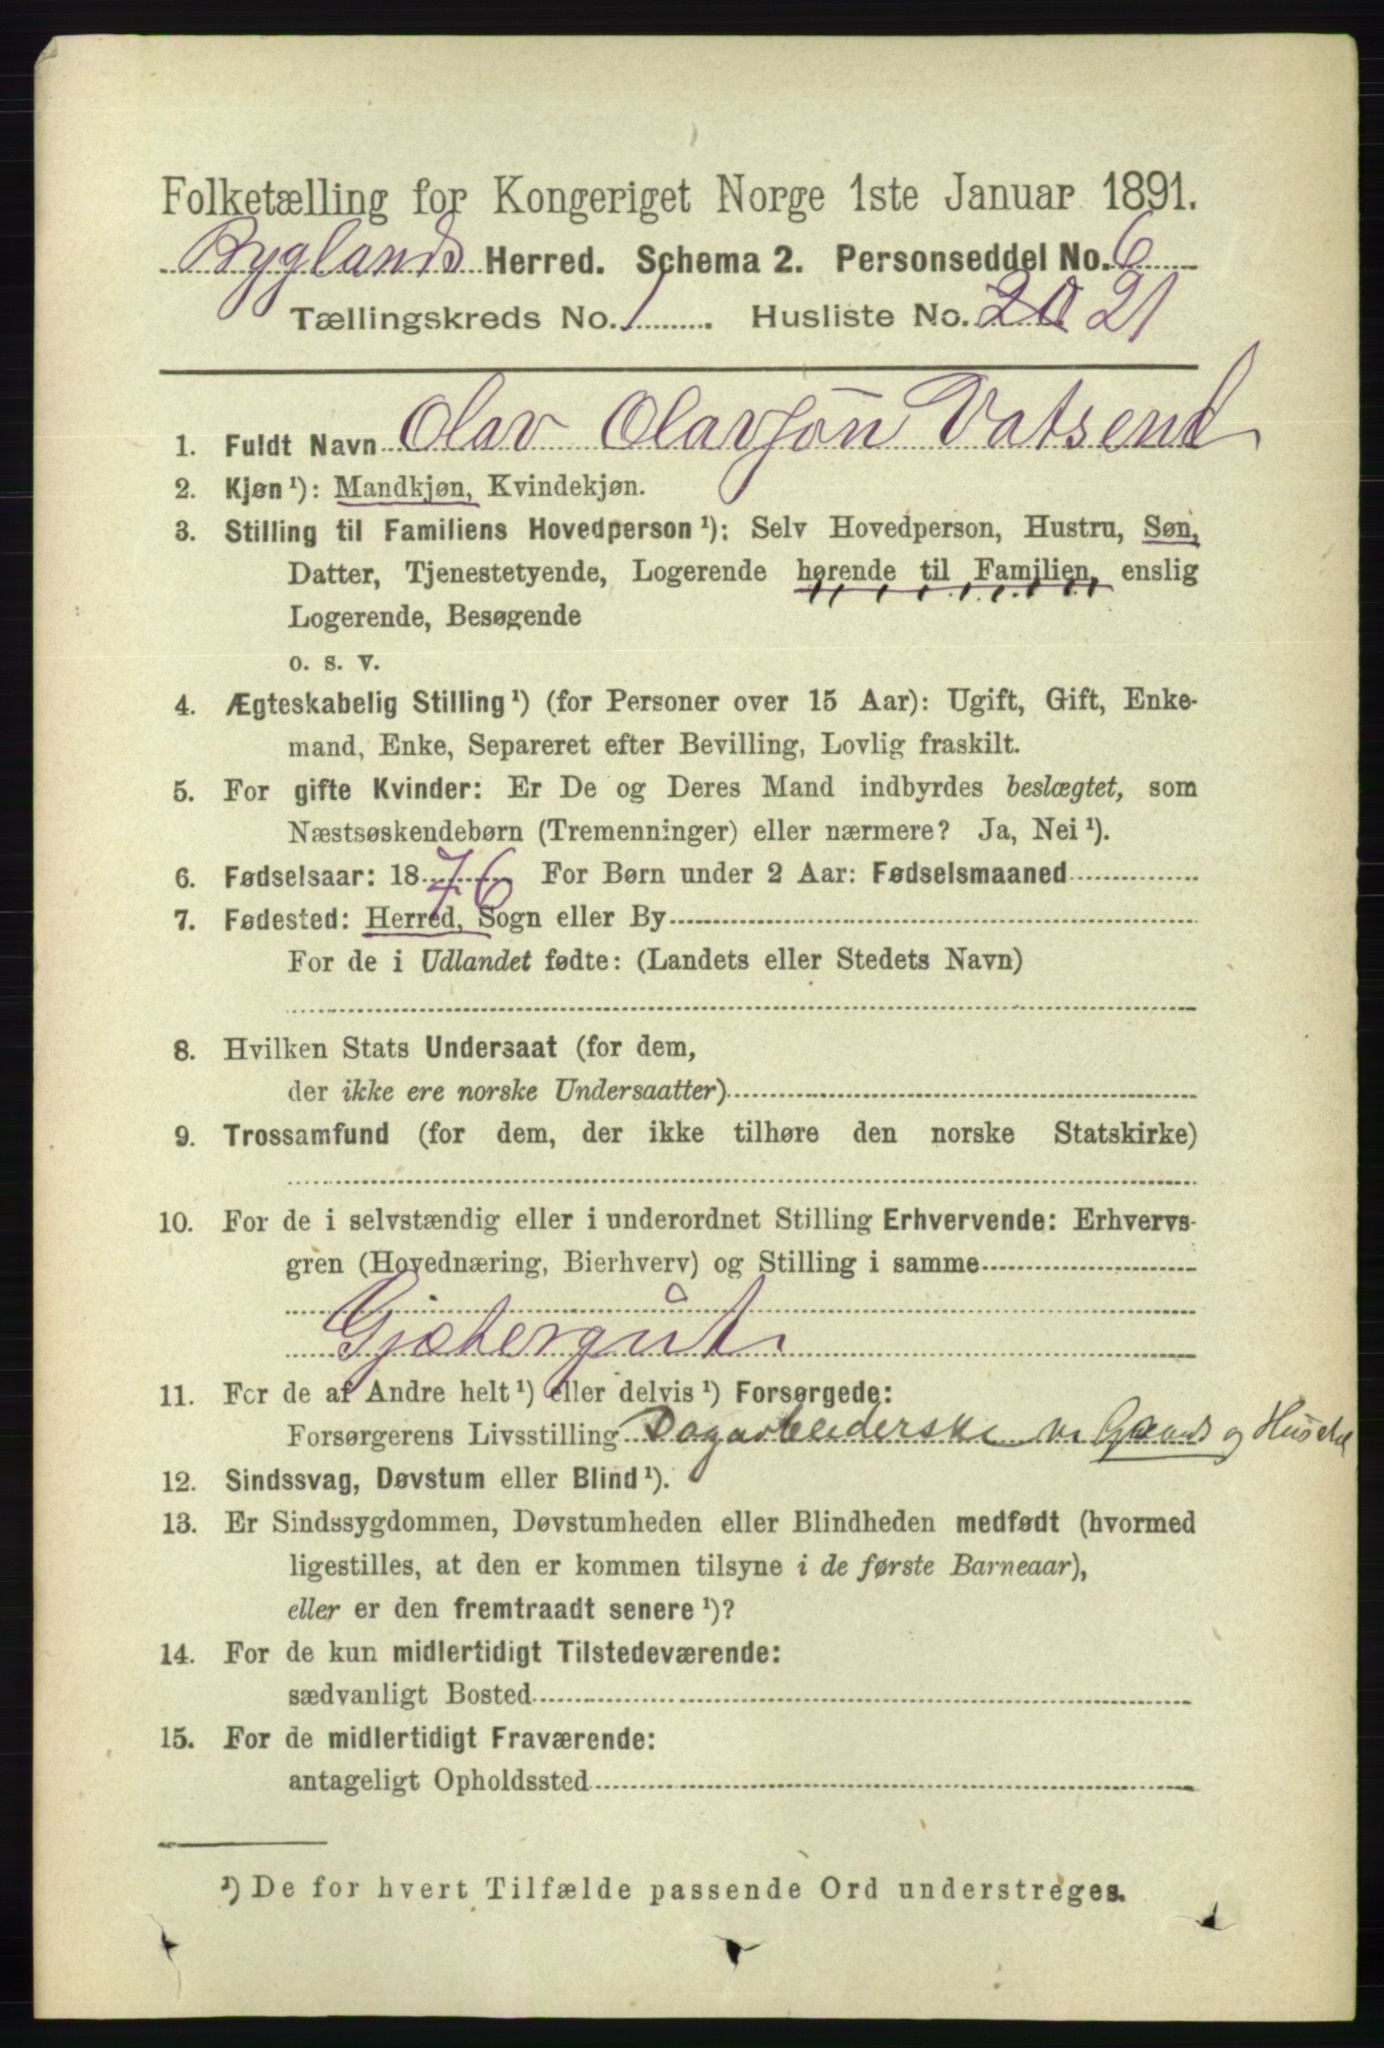 Folketælling for Kongeriget Norge 1ste Januar 1891.
Byglands Herred. Schema 2. Personseddel No. 6
Tællingskreds No. 1. Husliste No. 20 21
1. Fuldt Navn Olav Olavson Vatsend
2. Kjøn¹): Mandkjøn, Kvindekjøn.
3. Stilling til Familiens Hovedperson¹): Selv Hovedperson, Hustru, Søn,
Datter, Tjenestetyende, Logerende hørende til Familien, enslig
Logerende, Besøgende
o. s. v.
4. Ægteskabelig Stilling¹) (for Personer over 15 Aar): Ugift, Gift, Enke-
mand, Enke, Separeret efter Bevilling, Lovlig fraskilt.
5. For gifte Kvinder: Er De og Deres Mand indbyrdes beslægtet, som
Næstsøskendebørn (Tremenninger) eller nærmere? Ja, Nei¹).
6. Fødselsaar: 1876 For Børn under 2 Aar: Fødselsmaaned
7. Fødested: Herred, Sogn eller By
For de i Udlandet fødte: (Landets eller Stedets Navn)
8. Hvilken Stats Undersaat (for dem,
der ikke ere norske Undersaatter)
9. Trossamfund (for dem, der ikke tilhøre den norske Statskirke)
10. For de i selvstændig eller i underordnet Stilling Erhvervende: Erhvervs-
gren (Hovednæring, Bierhverv) og Stilling i samme
Gjætergut
11. For de af Andre helt¹) eller delvis¹) Forsørgede:
Forsørgerens Livsstilling Dagarbeiderske og
12. Sindssvag, Døvstum eller Blind¹).
13. Er Sindssygdommen, Døvstumheden eller Blindheden medfødt (hvormed
ligestilles, at den er kommen tilsyne i de første Barneaar),
eller er den fremtraadt senere¹)?
14. For de kun midlertidigt Tilstedeværende:
sædvanligt Bosted
15. For de midlertidigt Fraværende:
antageligt Opholdssted
¹) De for hvert Tilfælde passende Ord understreges.